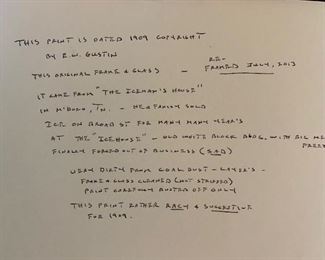 THIS PRINT IS DATED 1909 COPYRIGHT
BY E.W. GUSTIN
RE-
THIS ORIGINAL FRAME & GLASS - FRAMED JULY, 2013
IT CAME FROM "THE ICEMAN'S HOUSE"
IN M'BORO, TN. - HER FAMILY SOLD
ICE ON BROAD ST FOR MANY MANY YEAR'S
AT THE "ICEHOUSE" - OLD WHITE BLOCK BLDG. WITH BIG
FINALLY FORCED OUT OF BUSINESS (SAD)
VERY DIRTY FROM COAL DUST - LAYER'S -
FRAME & GLASS CLEANED (NOT STRIPPED)
PRINT CAREFULLY DUSTED OFF ONLY
THIS PRINT RATHER RACY & SUGGESTIVE
FOR 1909.